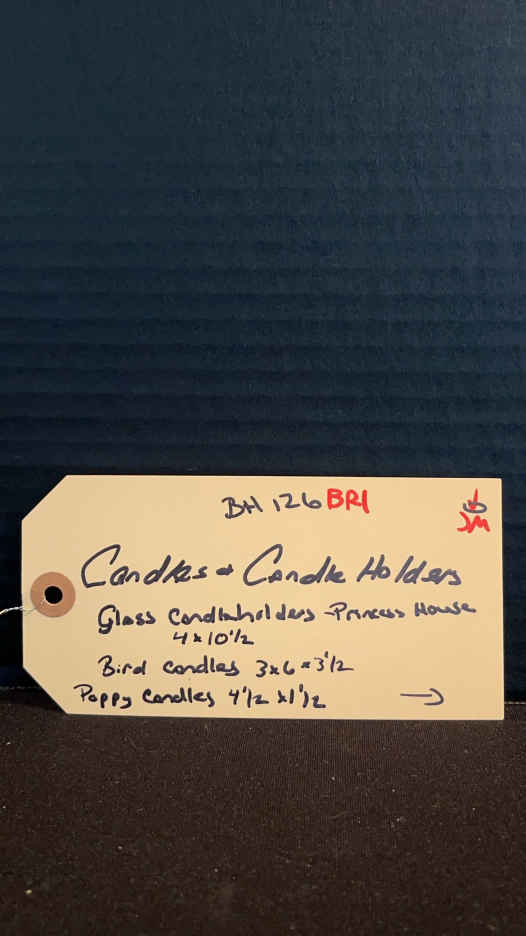 BH 126 BR1
JM
Candles + Candle Holders
Glass Candleholders - Princess House
4 x 10 1/2
Bird Candles 3x6 x 3 1/2
Poppy Candles 4 1/2 x 1 1/2 →